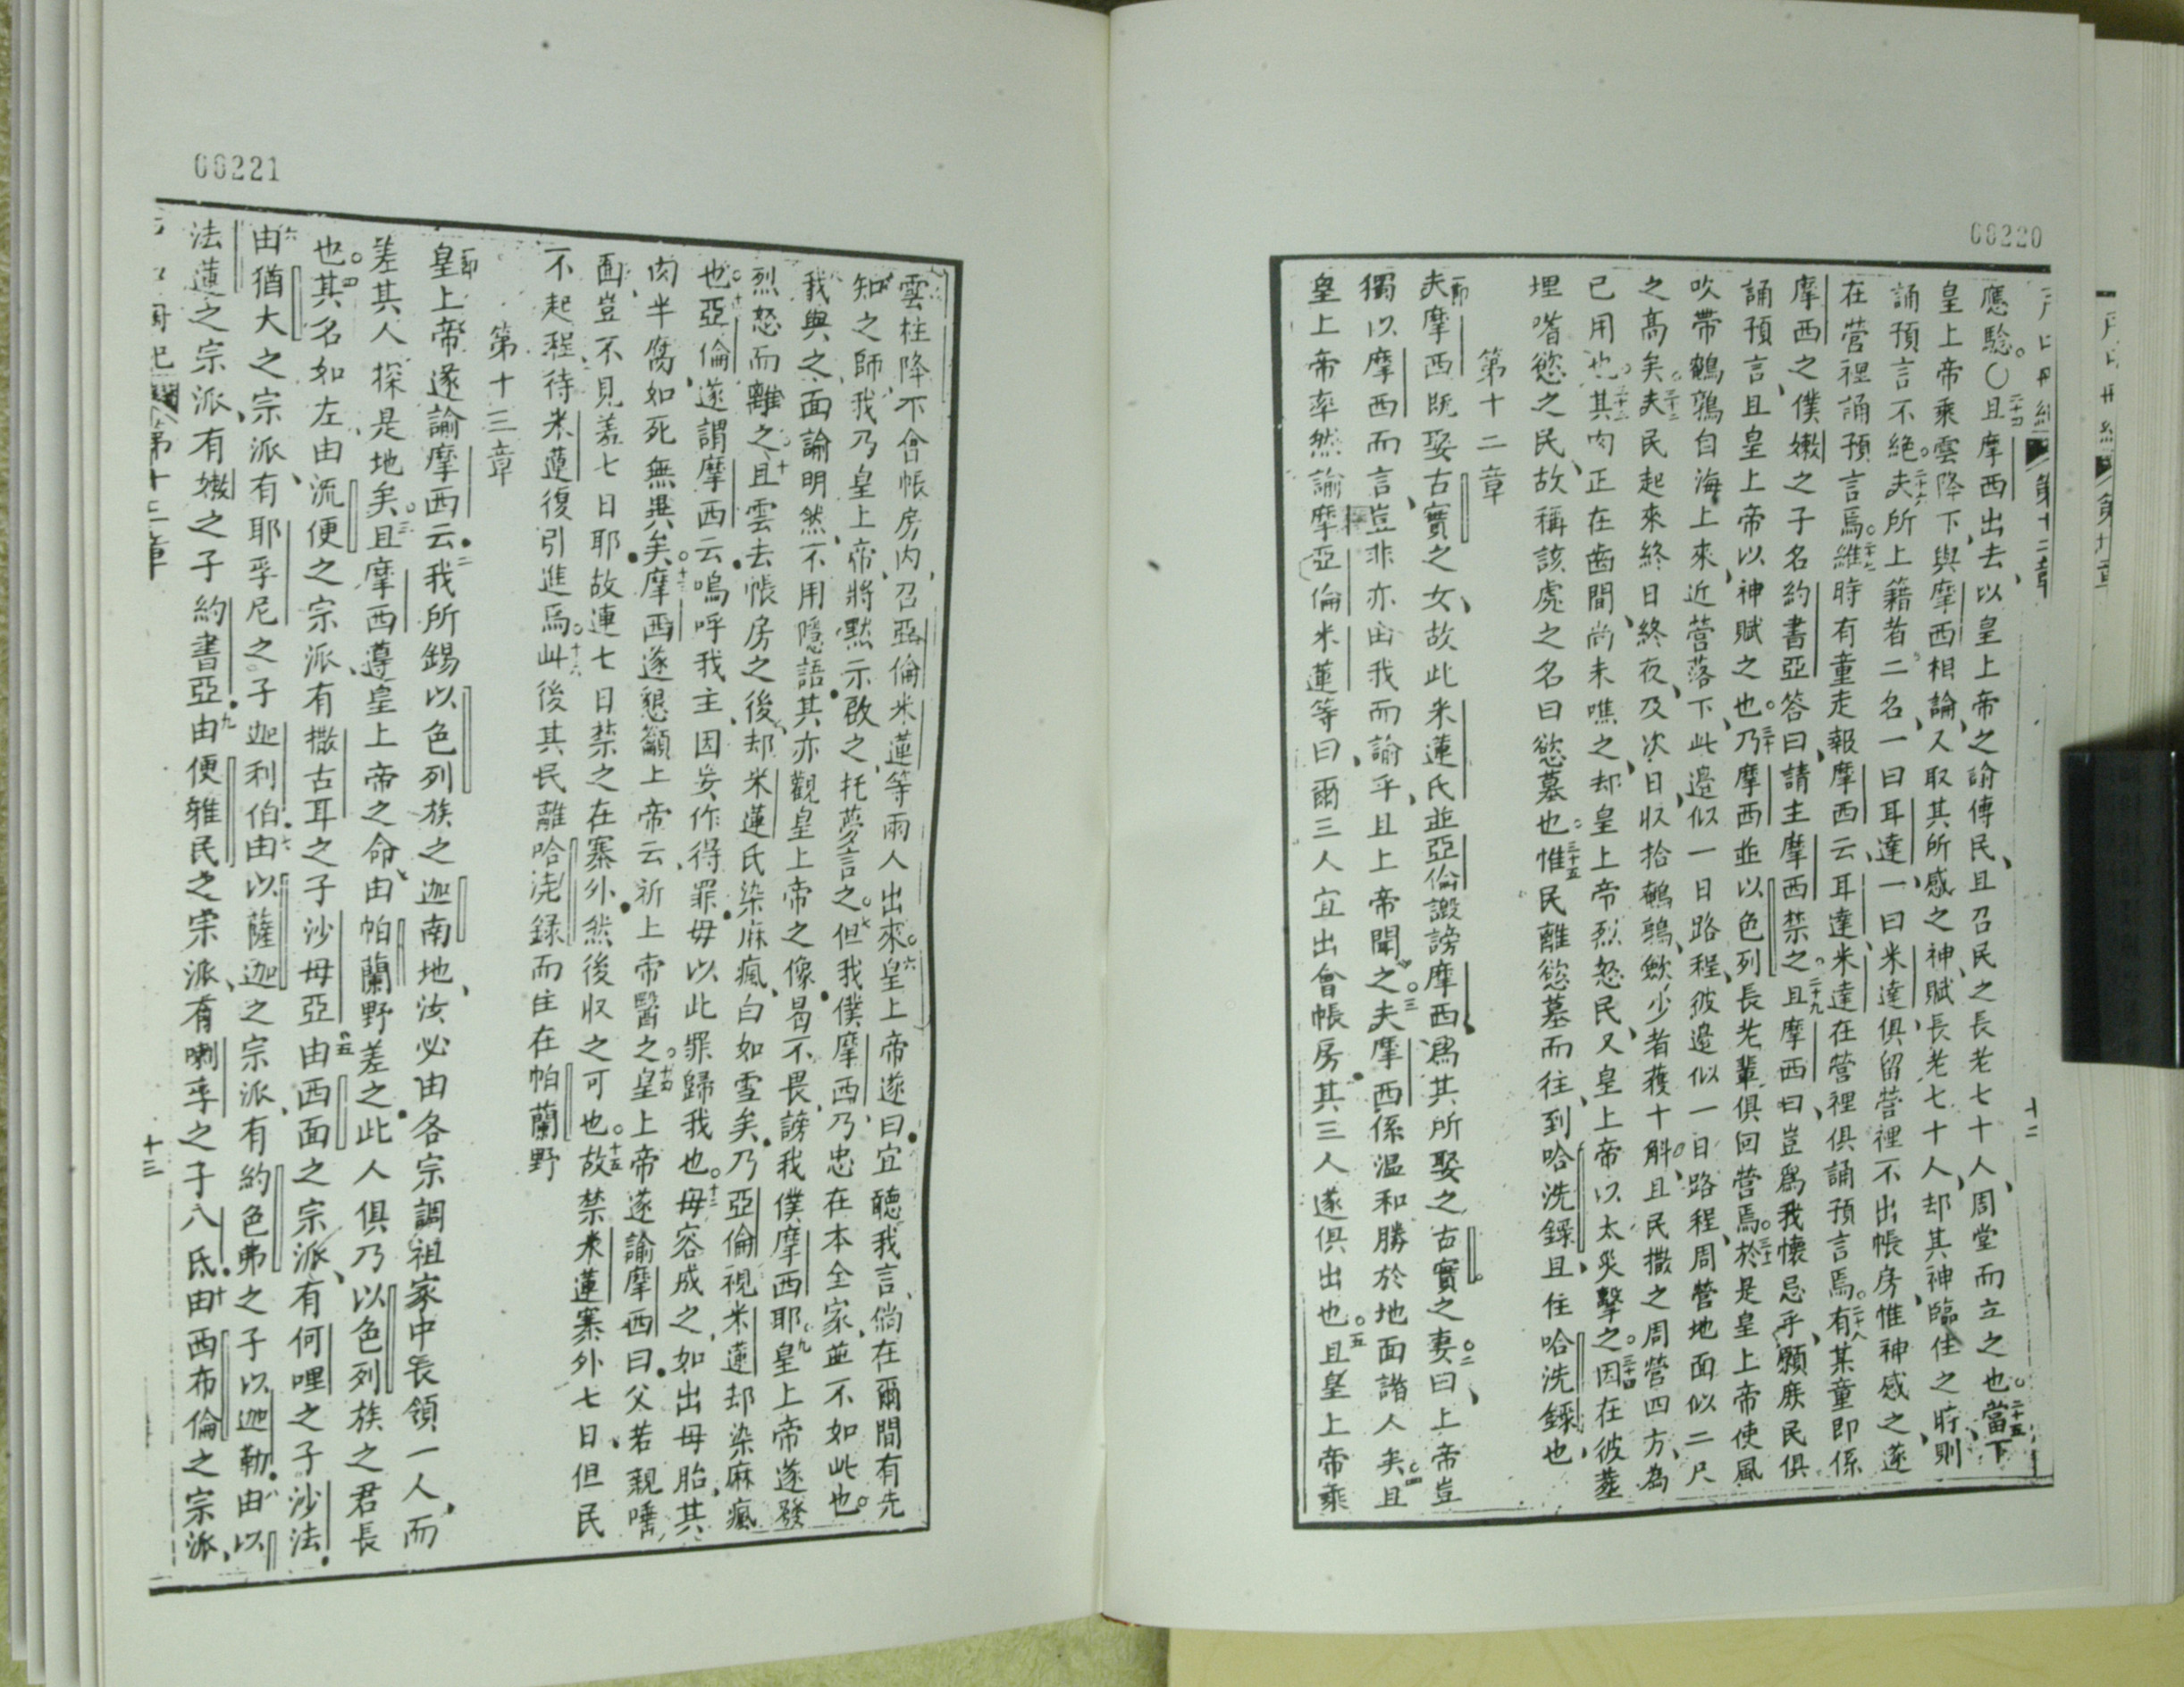 00220
第十二章
十二
應驗。○二十四且摩西出去、以皇上帝之諭傳民、且召民之長老七十人、周堂而立之也。二十五當下
皇上帝乘雲降下、與摩西相論、又取其所感之神、賦長老七十人、却其神臨住之時、則
誦預言不絕。二十六夫所上籍者二名、一曰耳達、一曰米達、俱留營裡不出帳房、惟神感之、遂
在營裡誦預言焉。二十七維時有童走報摩西云、耳達、米達在營裡俱誦預言焉。二十八有某童即係
摩西之僕嫩之子名約書亞答曰、請主摩西禁之。二十九且摩西曰、豈為我懷忌乎、願庶民俱
誦預言、且皇上帝以神賦之也。三十乃摩西並以色列長老輩俱回營焉。三十一於是皇上帝使風
吹帶鵪鶉自海上來、近營落下、此邊似一日路程、彼邊似一日路程、周營地面似二尺
之高矣。三十二夫民起來終日終夜、及次日收拾鵪鶉、欸少者獲十斛、且民撒之周營四方、為
已用也。三十三其肉正在齒間、尚未噍之、却皇上帝烈怒民、又皇上帝以太災擊之。三十四因在彼塟
埋嗜慾之民、故稱該處之名曰慾墓也。三十五惟民離慾墓而往、到哈洗錄、且住哈洗錄也、
第十二章
一節夫摩西既娶古實之女、故此米蓮氏並亞倫譭謗摩西、為其所娶之古實之妻。二曰、上帝豈
獨以摩西而言、豈非亦由我而諭乎、且上帝聞之。三夫摩西係溫和勝於地面諸人矣。四且
皇上帝率然諭摩西亞倫米蓮等曰、爾三人宜出會帳房、其三人遂俱出也。五且皇上帝乘
00221
雲柱降、不會帳房內、召亞倫米蓮等兩人出來。六皇上帝遂曰、宜聽我言、倘在爾間有先
知之師、我乃皇上帝、將默示啟之、托夢言之。七但我僕摩西、乃忠在本全家、並不如此也。八
我與之、面諭明然、不用隱語、其亦觀皇上帝之像、曷不畏謗我僕摩西耶。九皇上帝遂發
烈怒而離之。十且雲去帳房之後、却米蓮氏染麻瘋、白如雪矣、乃亞倫視米蓮却染麻瘋
也。十一亞倫遂謂摩西云、嗚呼我主、因妄作得罪、毋以此罪歸我也。十二毋容成之、如出母胎、其
肉半腐如死無異矣。十三摩西遂懇籲上帝云、祈上帝醫之。十四皇上帝遂諭摩西曰、父若親唾
面、豈不見羞七日耶、故連七日禁之在寨外、然後收之可也。十五故禁米蓮寨外七日、但民
不起程、待米蓮復引進焉。十六此後其民離哈洗錄而住在帕蘭野
第十三章
一節皇上帝遂諭摩西云、二我所錫以色列族之迦南地、汝必由各宗調祖家中長領一人、而
差其人探是地矣。三且摩西遵皇上帝之命、由帕蘭野差之、此人俱乃以色列族之君長
也。四其名如左、由流便之宗派、有撒古耳之子沙母亞。五由西面之宗派、有何哩之子沙法、
六由猶大之宗派、有耶孚尼之子迦利伯、七由以薩迦之宗派、有約色弗之子以迦勒、八由以
法蓮之宗派、有嫩之子約書亞、九由便雅民之宗派、有喇孚之子八氐、十由西布倫之宗派、
第十三章
十三